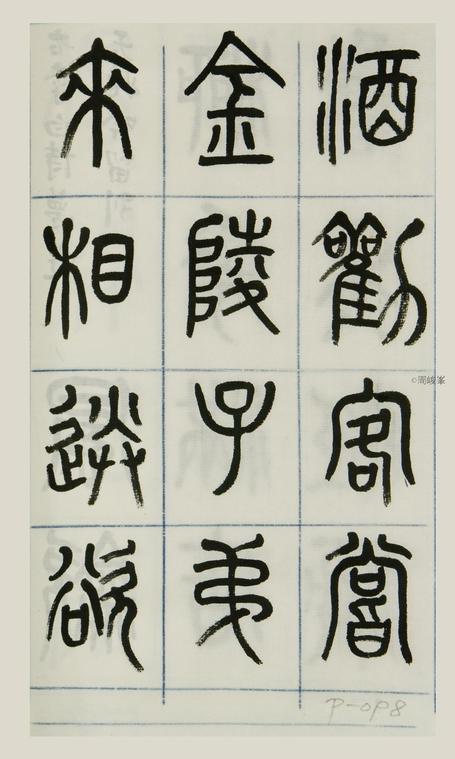 酒勸客嘗
金陵子弟
來相送欲
P-098
©周峻峯